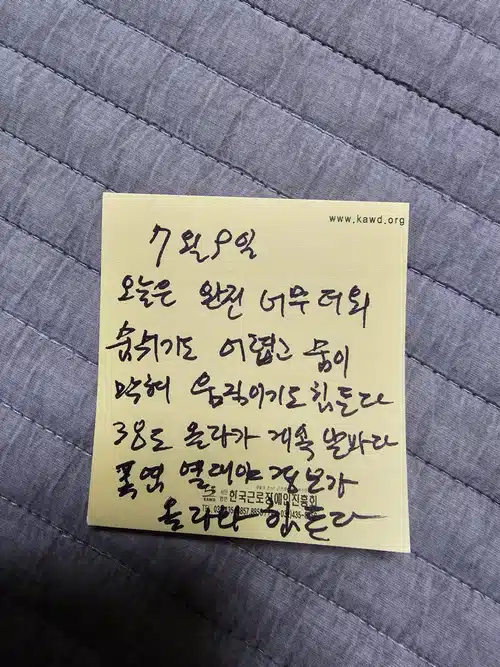 www.kawd.org
7월 9일
오늘은 완전 너무 더워
숨쉬기도 어렵고 몸이
막혀 움직이기도 힘든다
38도 올라가 계속
폭염 열대야 경보가
한국근로장애인진흥회
올라와 힘든다